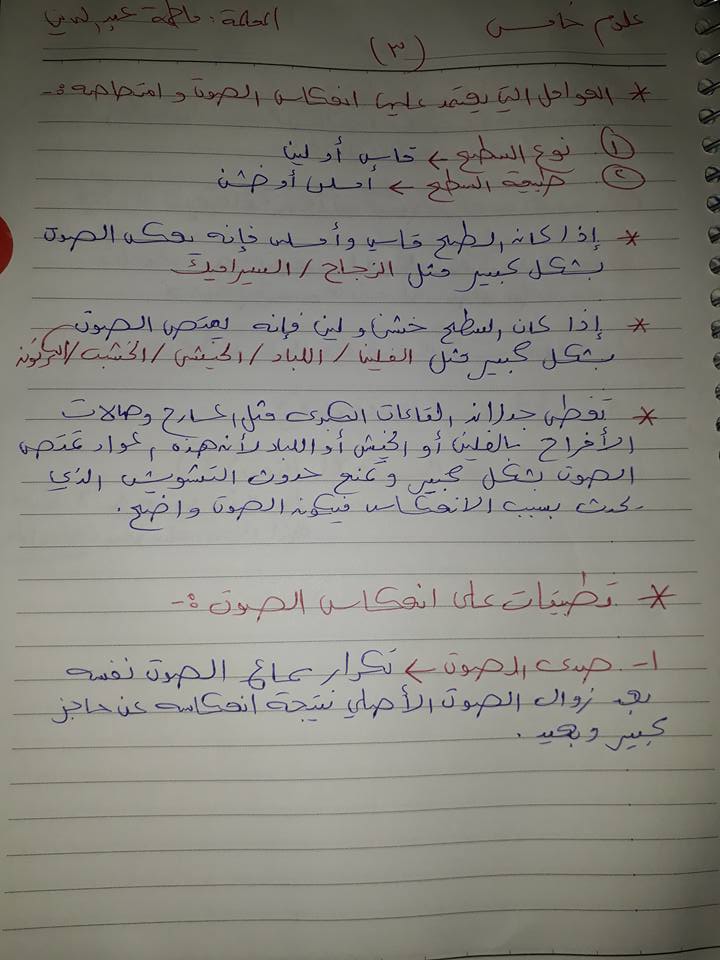 علوم خامس
المعلمة: فاطمة عبد
(٣)
* العوامل التي يعتمد عليها انعكاس الصوت وامتصاصه :-
١ نوع السطح ← قاس أو لين
٢ طبيعة السطح ← أملس أو خشن
* إذا كان السطح قاس وأملس فإنه يعكس الصوت
بشكل كبير مثل الزجاج / السيراميك
* إذا كان السطح خشن ولين فإنه يمتص الصوت
بشكل كبير مثل الفلين / اللباد / الخيش / الخشب / الكرتون
* تغطى جدران القاعات الكبرى مثل المسارح وصالات
الأفراح بالفلين أو الخيش أو اللباد لأن هذه المواد تمتص
الصوت بشكل كبير وتمنع حدوث التشويش الذي
يحدث بسبب الانعكاس فيكون الصوت واضح .
* تطبيقات على انعكاس الصوت :-
١- صدى الصوت ← تكرار سماع الصوت نفسه
بعد زوال الصوت الأصلي نتيجة انعكاسه عن حاجز
كبير وبعيد .